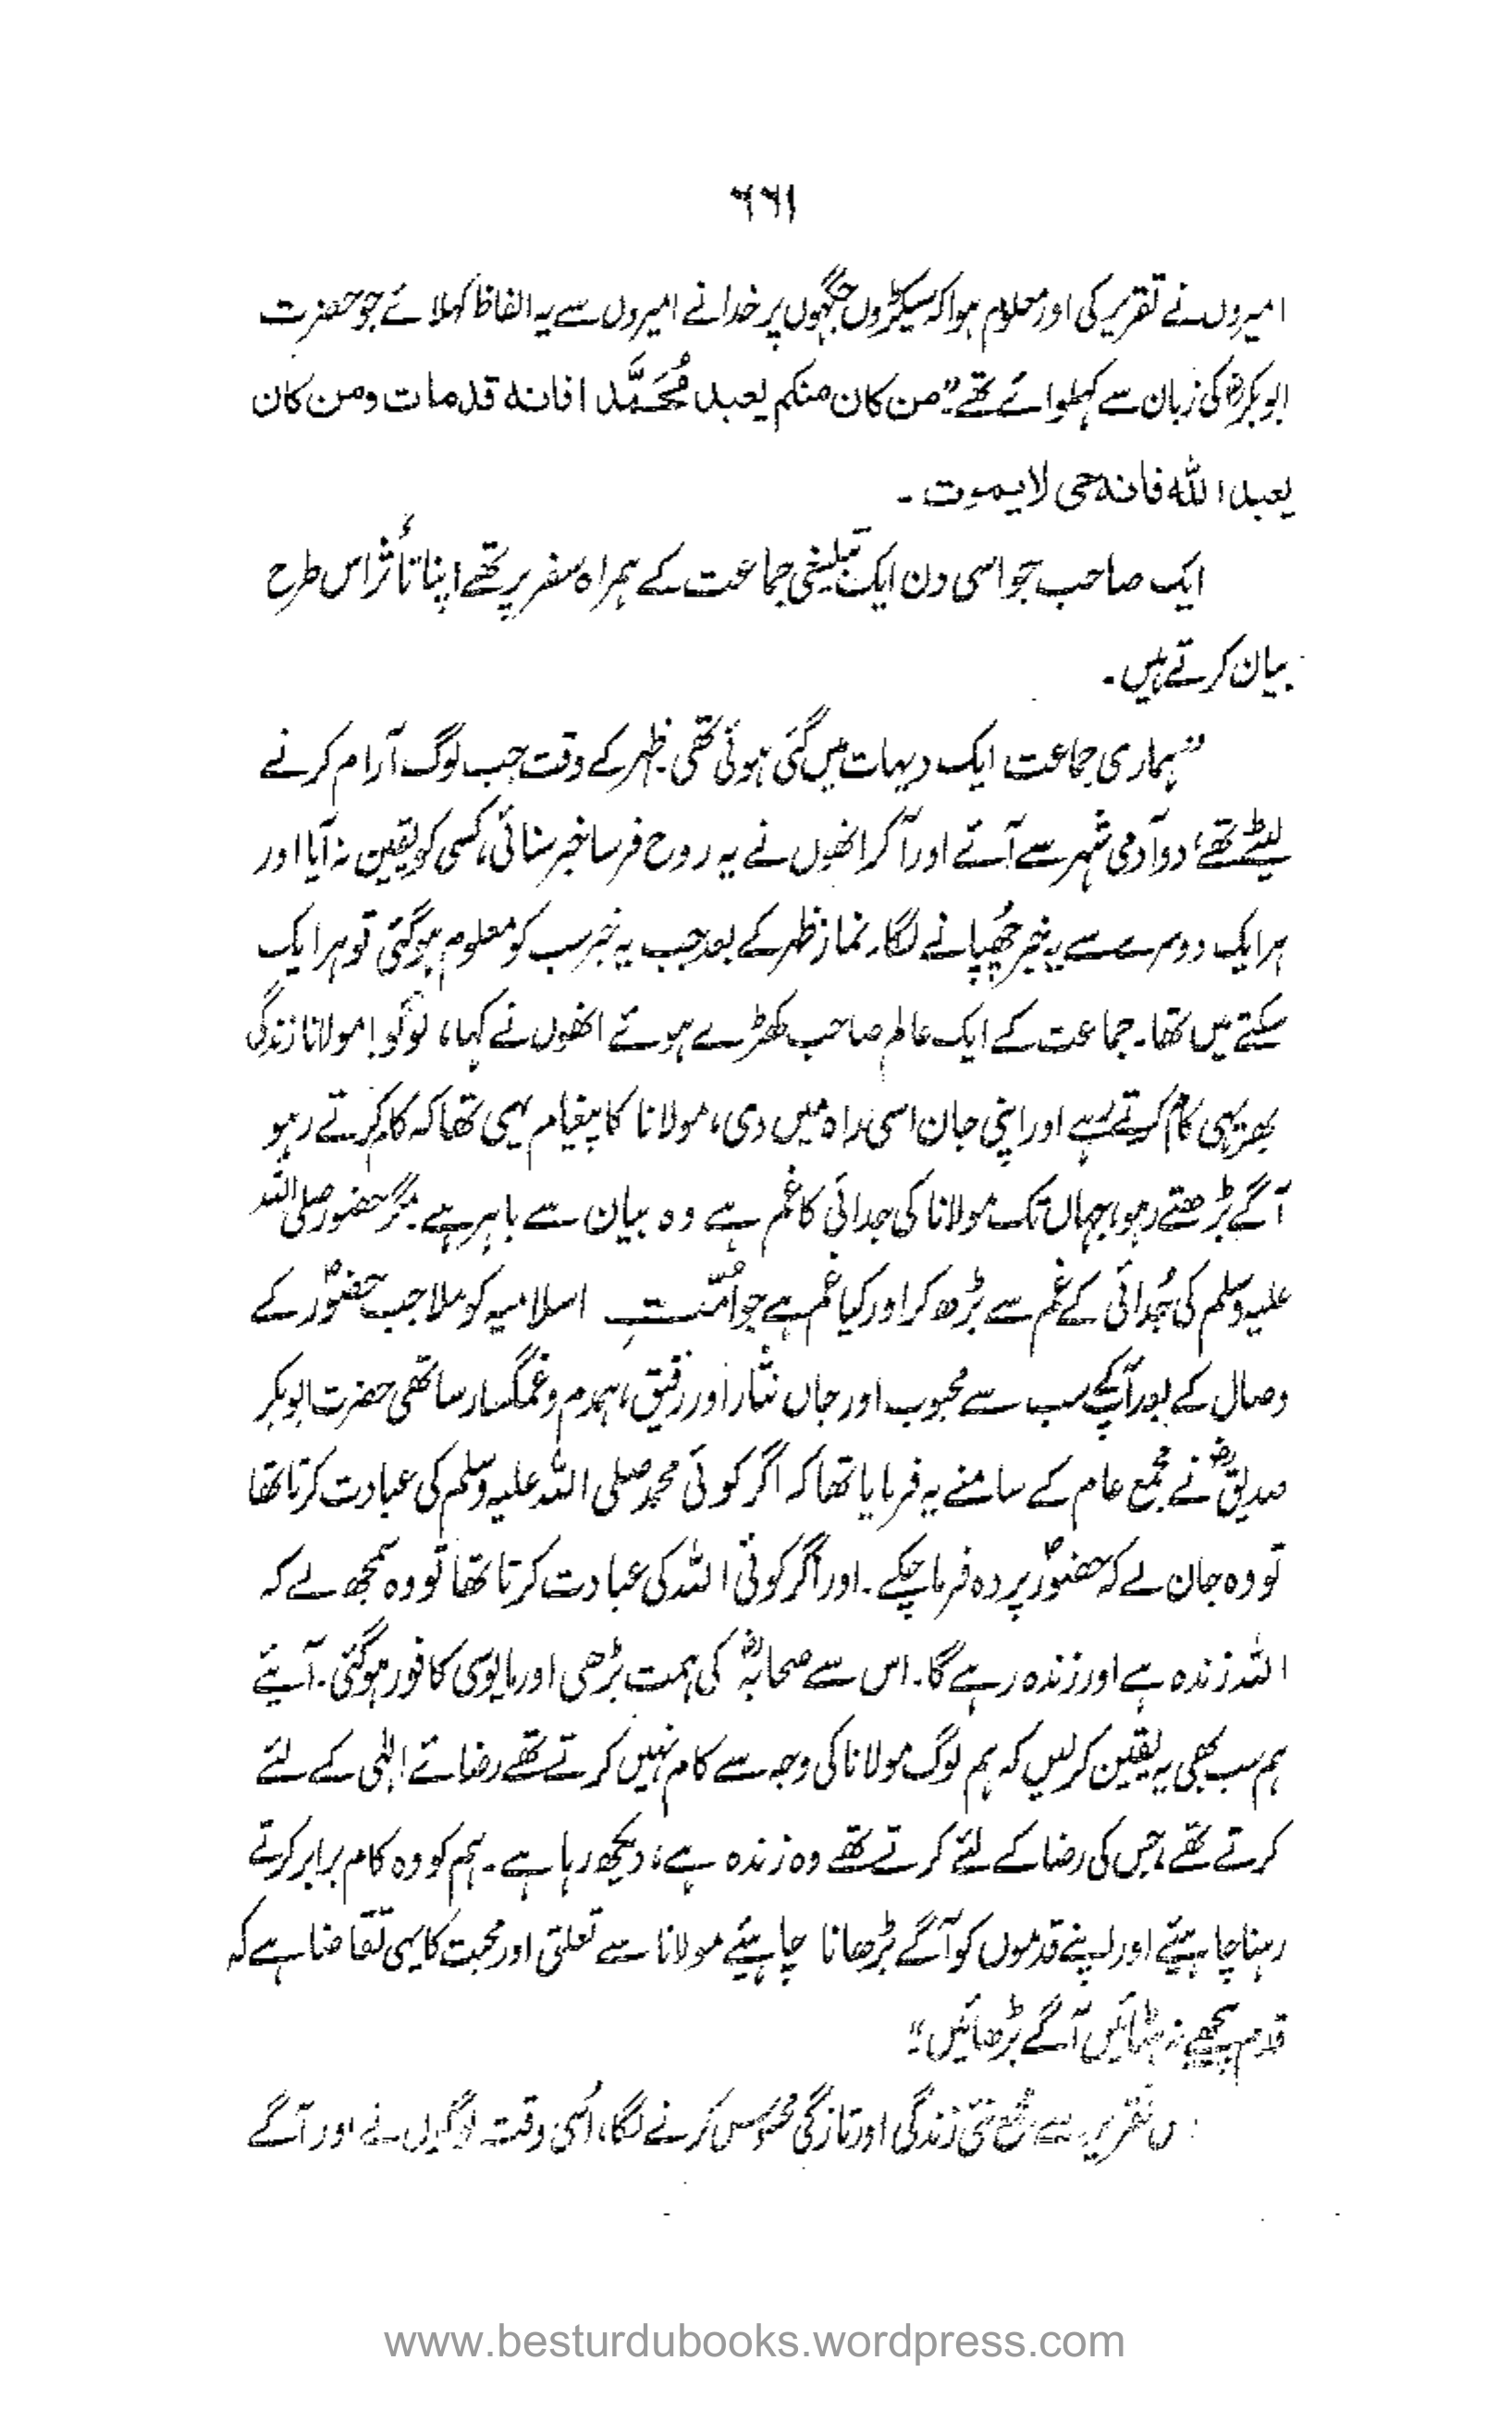 ۶۶۱
امیروں نے تقریر کی اور معلوم ہوا کہ سیکڑوں جگہوں پر خدا نے امیروں سے یہ الفاظ کہلائے جو حضرت
ابو بکرؓ کی زبان سے کہلوائے تھے "من کان منکم یعبد مُحَمَّدا فانه قد مات ومن کان
یعبد الله فانه حی لا یموت ۔
ایک صاحب جو اسی دن ایک تبلیغی جماعت کے ہمراہ سفر پر تھے اپنا تأثر اس طرح
بیان کرتے ہیں ۔
"ہماری جماعت ایک دیہات میں گئی ہوئی تھی۔ ظہر کے وقت جب لوگ آرام کرنے
لیٹے تھے، دو آدمی شہر سے آئے اور آکر انھوں نے یہ روح فرسا خبر سنائی، کسی کو یقین نہ آیا اور
ہر ایک دوسرے سے یہ خبر چھُپانے لگا۔ نماز ظہر کے بعد جب یہ خبر سب کو معلوم ہو گئی تو ہر ایک
سکتے میں تھا۔ جماعت کے ایک عالم صاحب کھڑے ہوئے انھوں نے کہا، لوگو! مولانا زندگی
بھر یہی کام کرتے رہے اور اپنی جان اسی راہ میں دی، مولانا کا پیغام یہی تھا کہ کام کرتے رہو
آگے بڑھتے رہو، جہاں تک مولانا کی جدائی کا غم ہے وہ بیان سے باہر ہے۔ مگر حضور صلی اللہ
علیہ وسلم کی جُدائی کے غم سے بڑھ کر اور کیا غم ہے جو اُمّتِ اسلامیہ کو ملا جب حضورؐ کے
وصال کے بعد آپؐ کے سب سے محبوب اور جاں نثار اور رفیق، ہمدم و غمگسار ساتھی حضرت ابو بکر
صدیقؓ نے مجمع عام کے سامنے یہ فرمایا تھا کہ اگر کوئی محمد صلی اللہ علیہ وسلم کی عبادت کرتا تھا
تو وہ جان لے کہ حضورؐ پردہ فرما چکے۔ اور اگر کوئی اللہ کی عبادت کرتا تھا تو وہ سمجھ لے کہ
اللہ زندہ ہے اور زندہ رہے گا۔ اس سے صحابہؓ کی ہمت بڑھی اور مایوسی کافور ہو گئی۔ آئیے
ہم سب بھی یہ یقین کر لیں کہ ہم لوگ مولانا کی وجہ سے کام نہیں کرتے تھے رضائے الٰہی کے لئے
کرتے تھے، جس کی رضا کے لئے کرتے تھے وہ زندہ ہے، دیکھ رہا ہے۔ ہم کو وہ کام برابر کرتے
رہنا چاہیئے اور اپنے قدموں کو آگے بڑھانا چاہیئے مولانا سے تعلق اور محبت کا یہی تقاضا ہے کہ
قدم پیچھے نہ ہٹائیں آگے بڑھائیں"
تقریر سے مجمع نئی زندگی اور تازگی محسوس کرنے لگا، اُسی وقت لوگوں نے اور آگے
www.besturdubooks.wordpress.com